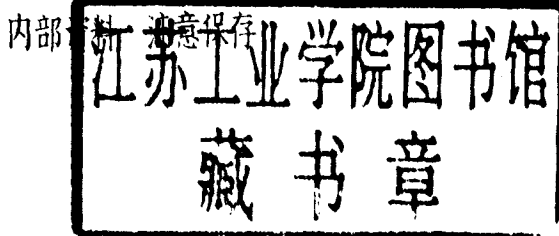 内部资料 注意保存
江苏工业学院图书馆
藏书章